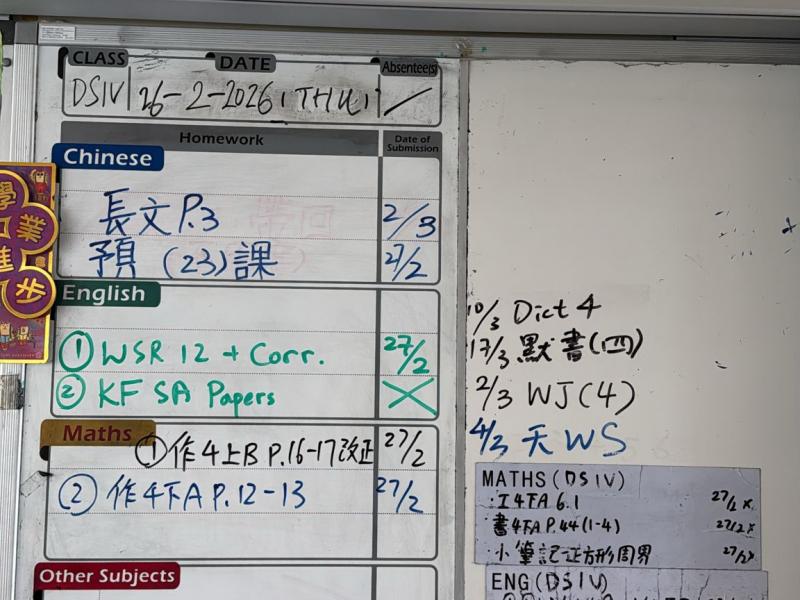 CLASS DATE Absentee(s)
DSIV 26-2-2026, (THU) /
Homework Date of Submission
Chinese
長文P.3 2/3
預(23)課 27/2
English
① WSR 12 + Corr. 27/2
② KF SA Papers ×
Maths
①作4上B P.16-17改正 27/2
②作4下A P.12-13 27/2
Other Subjects
學業進步
10/3 Dict 4
17/3 默書(四)
2/3 WJ(4)
4/3 天WS
MATHS(DSIV)
工4下A 6.1 27/2 ×
書4下A P.44(1-4) 27/2 ×
小筆記-正方形周界 27/2 ×
ENG(DSIV)